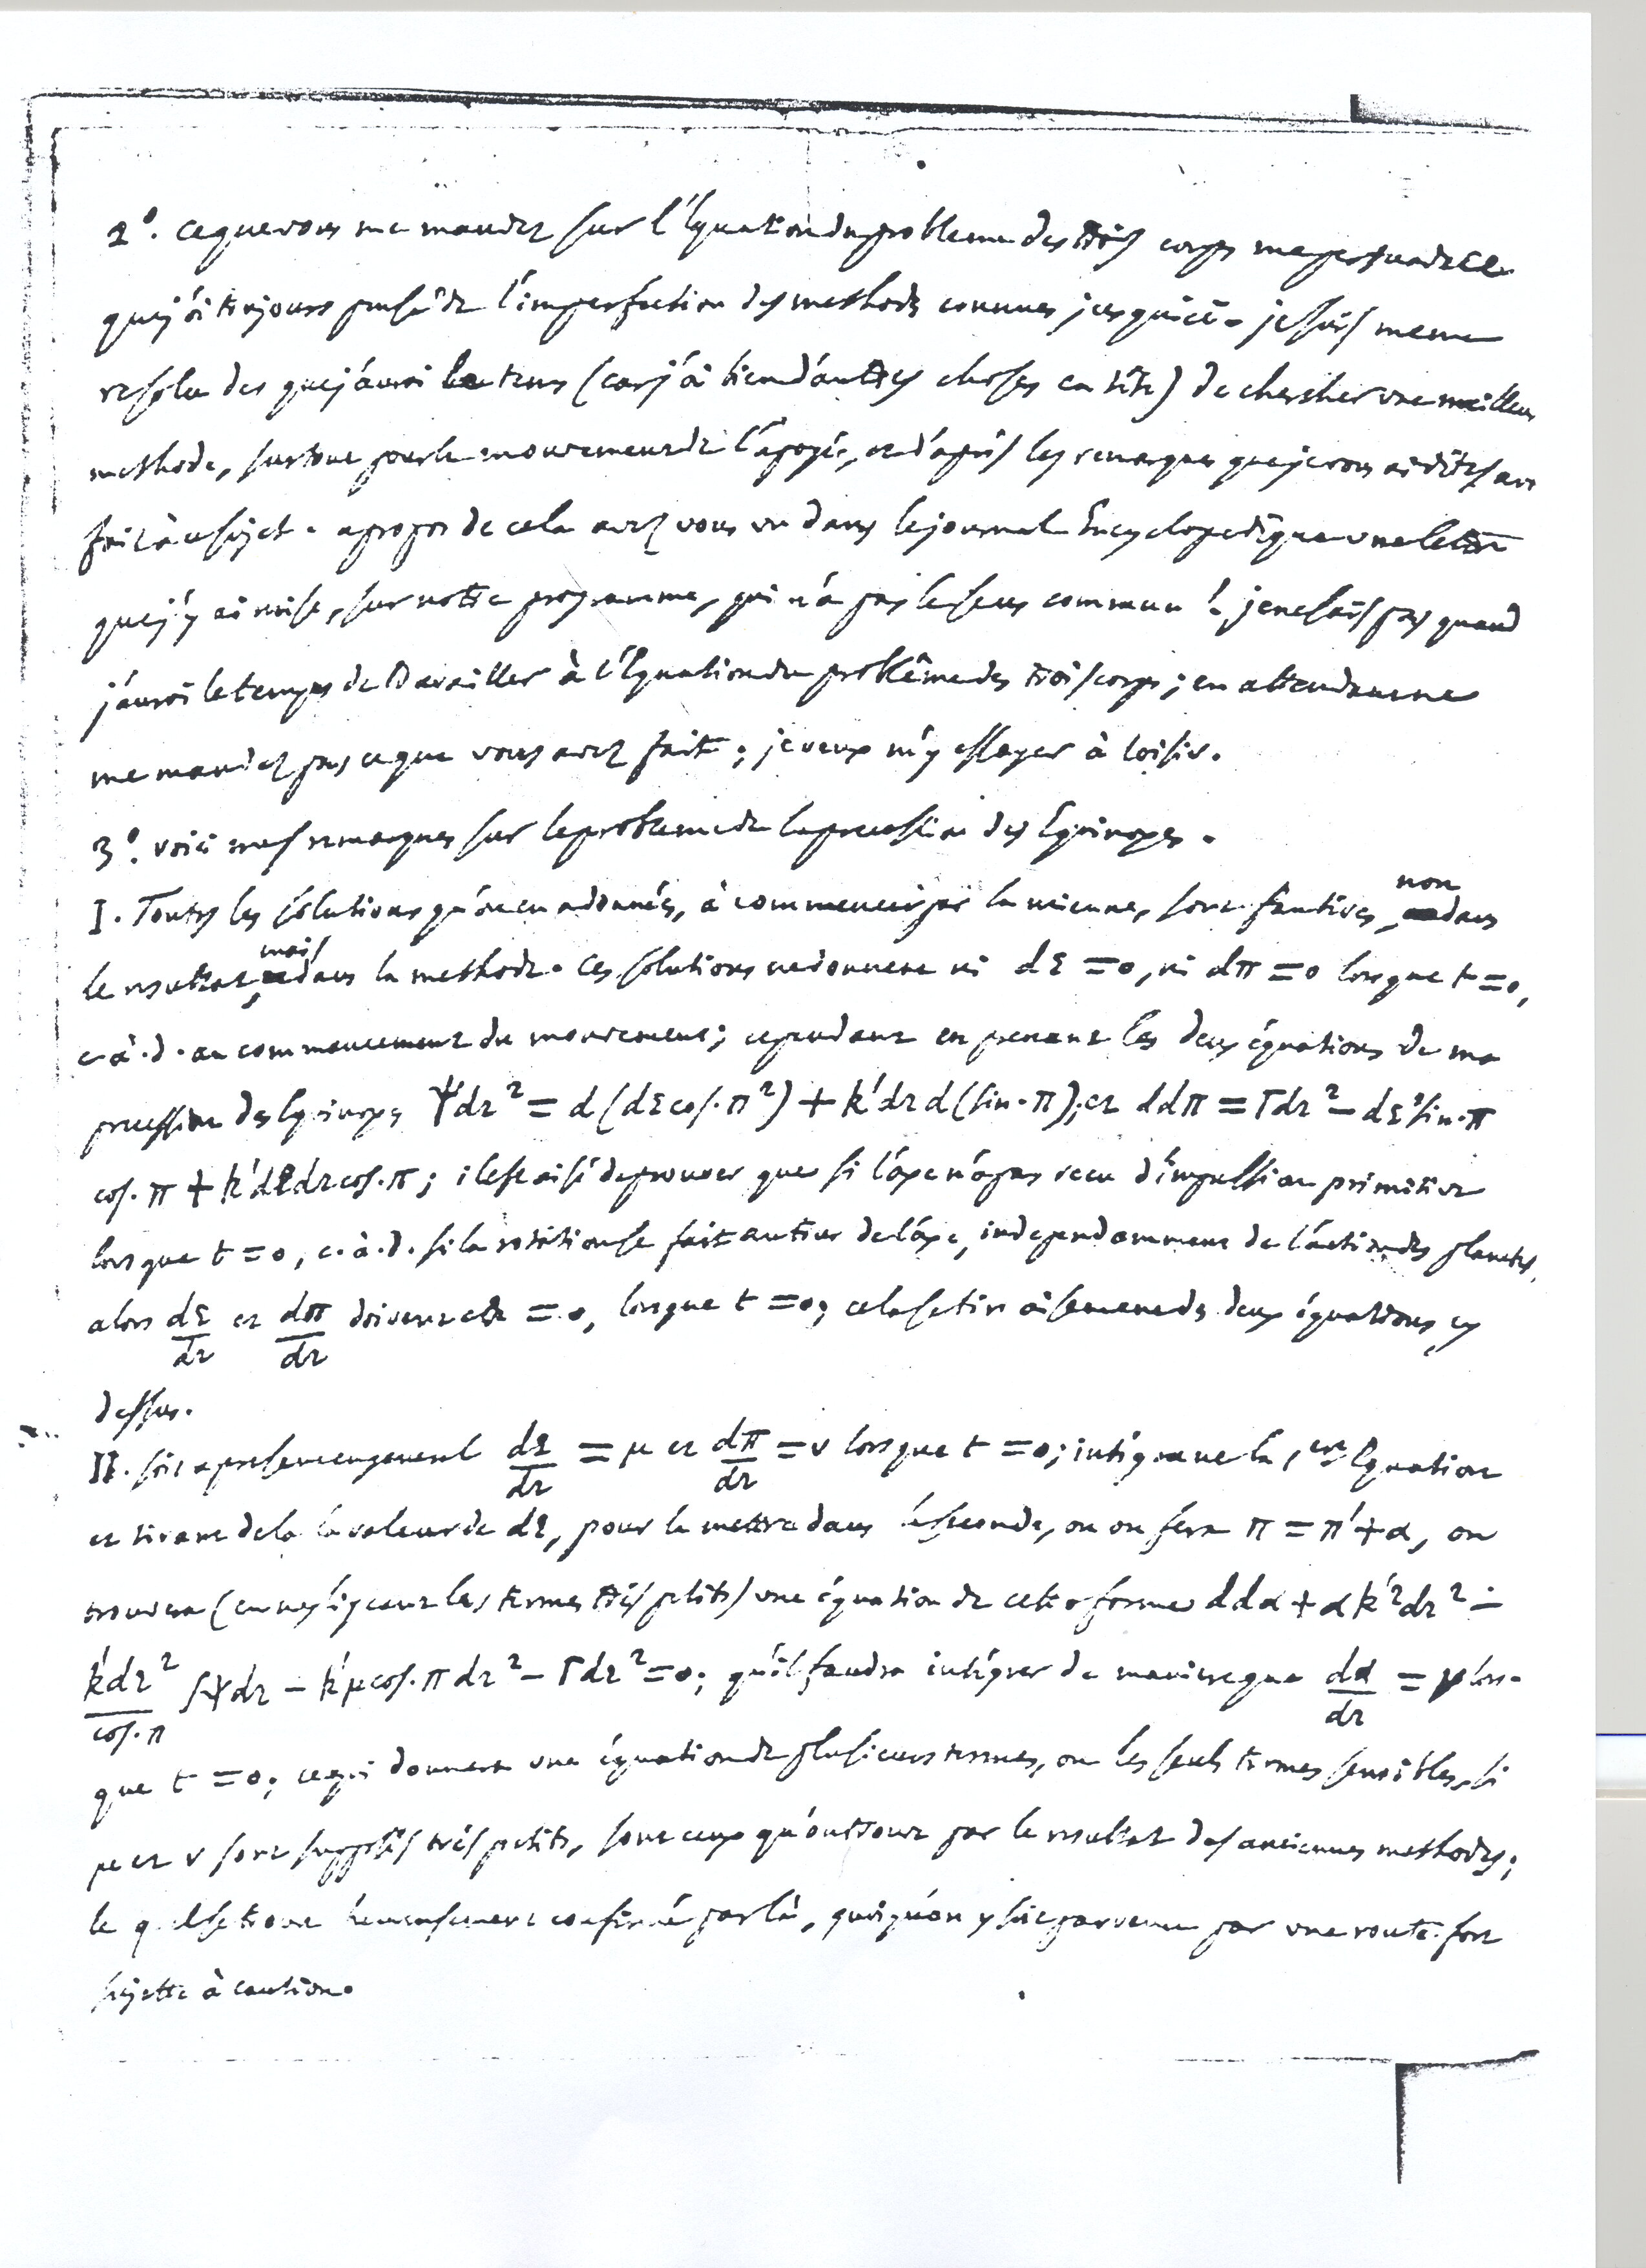 2°. ce que vous me mandez sur l'Equation du probleme des trois corps me persuade ce
que j'ai toujours pensé de l'imperfection des methodes connues jusqu'ici. je suis meme
resolu des que j'aurai le tems (car j'ai bien d'autres choses en tête) de chercher une meilleure
methode, surtout pour le mouvement de l'apogée, et d'après les remarques que je vous ai dites avoir
fait à ce sujet. a propos de cela avez vous vu dans le journal Encyclopedique une lettre
que j'y ai mise, sur notre programme, qui n'a pas le sens commun! je ne sais pas quand
j'aurai le temps de travailler à l'Equation du problême des trois corps; en attendant ne
me mandez pas ce que vous avez fait; je veux m'y essayer à loisir.
3°. voici mes remarques sur le probleme de la precession des Equinoxes.
I. Toutes les solutions qu'on en a données, à commencer par la mienne, sont fautives, non dans
le resultat, mais dans la methode. Ces solutions ne donnent ni dε = 0, ni dπ = 0 lorsque t = 0,
c. à. d. au commencement du mouvement; cependant en prenant les deux équations de ma
precession des Equinoxes Ψdz² = d(dε cos. π²) + k'dz d(sin. π); et ddπ = Γdz² - dε² sin. π
cos. π + k'dεdz cos. π; il est aisé de prouver que si l'axe n'a pas recu d'impulsion primitive
lorsque t = 0, c. à. d. si la rotation se fait autour de l'axe, independamment de l'action des planetes,
alors dε/dz et dπ/dz doivent etre = 0, lorsque t = 0; cela se tire aisement des deux équations cy
dessus.
II. soit a present en general dε/dz = μ et dπ/dz = ν lorsque t = 0; intégrant la 1ere Equation
et tirant de là la valeur de dε, pour la mettre dans la seconde, ou on fera π = π' + α, on
trouvera (en negligeant les termes très petits) une équation de cette forme ddα + αk'²dz² -
k'dz²/cos. π ∫Ψdz - k'μ cos. π dz² - Γdz² = 0; qu'il faudra intégrer de maniere que dα/dz = ν lors-
que t = 0; ce qui donnera une équation de plusieurs termes, ou les seuls termes sensibles, si
μ et ν sont supposés très petits, sont ceux qu'on trouve par le resultat des anciennes methodes;
le quel se trouve heureusement confirmé par là, quoiqu'on y soit parvenu par une route fort
sujette à caution.